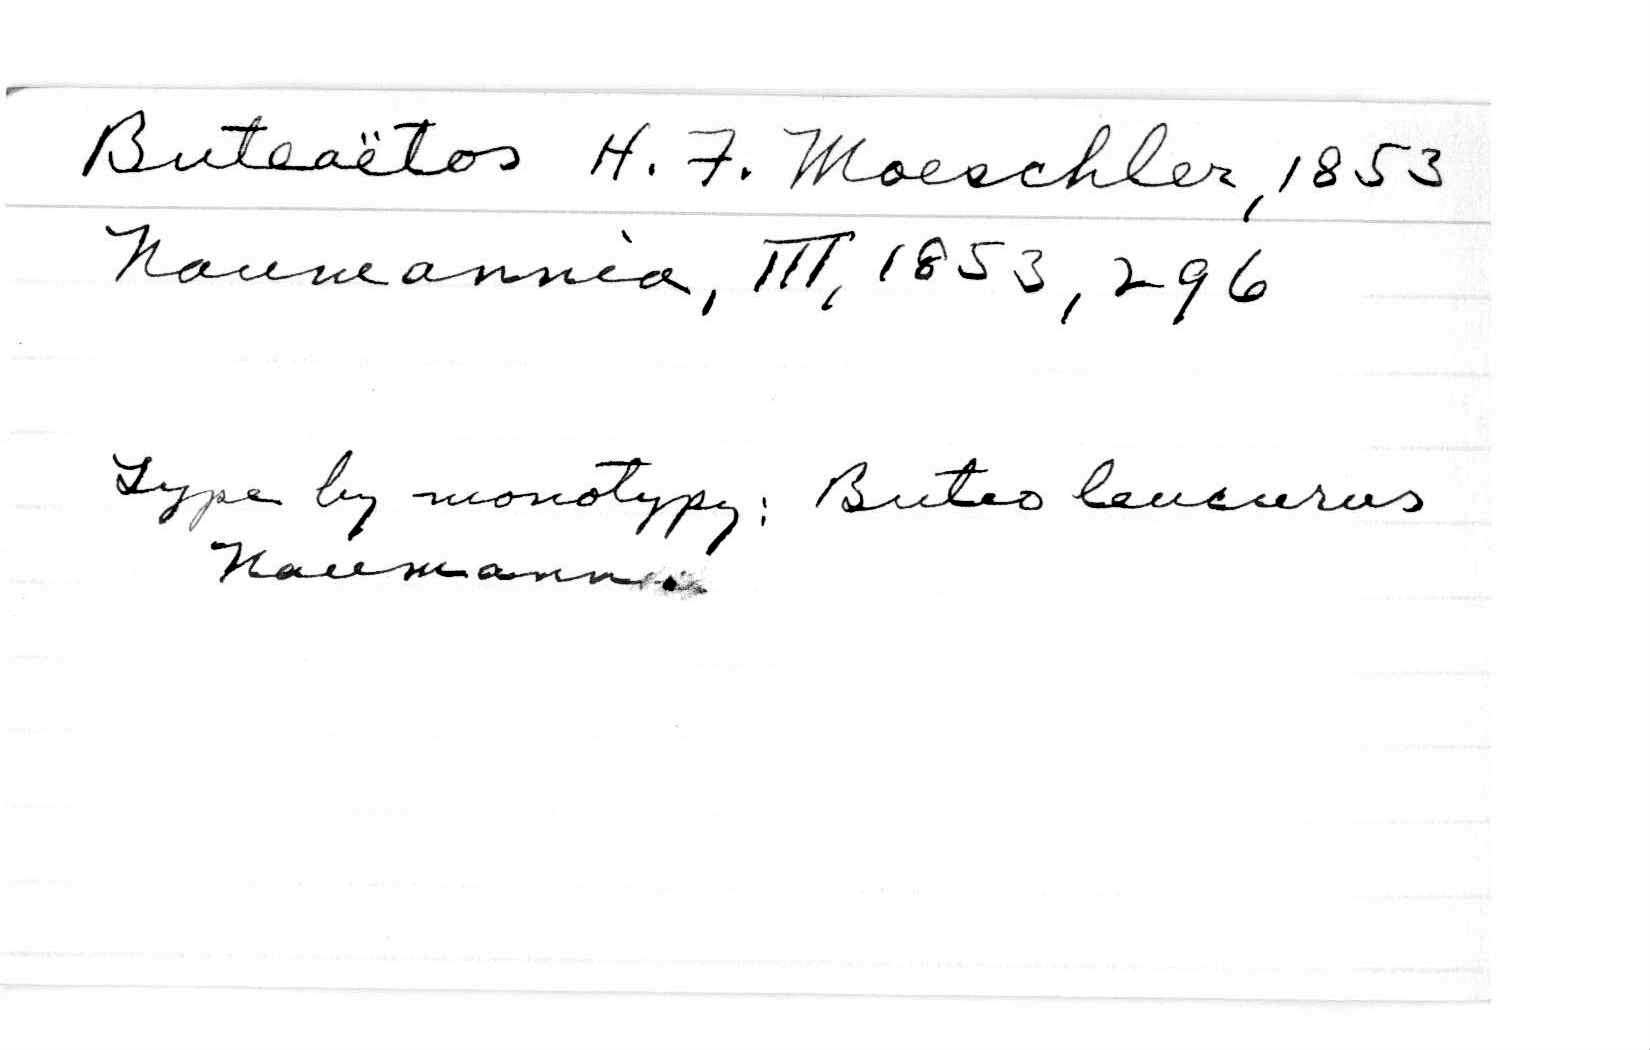 Buteaëtos H. F. Moeschler, 1853
Naumannia, III, 1853, 296
Type by monotypy: Buteo leucurus
Naumann.